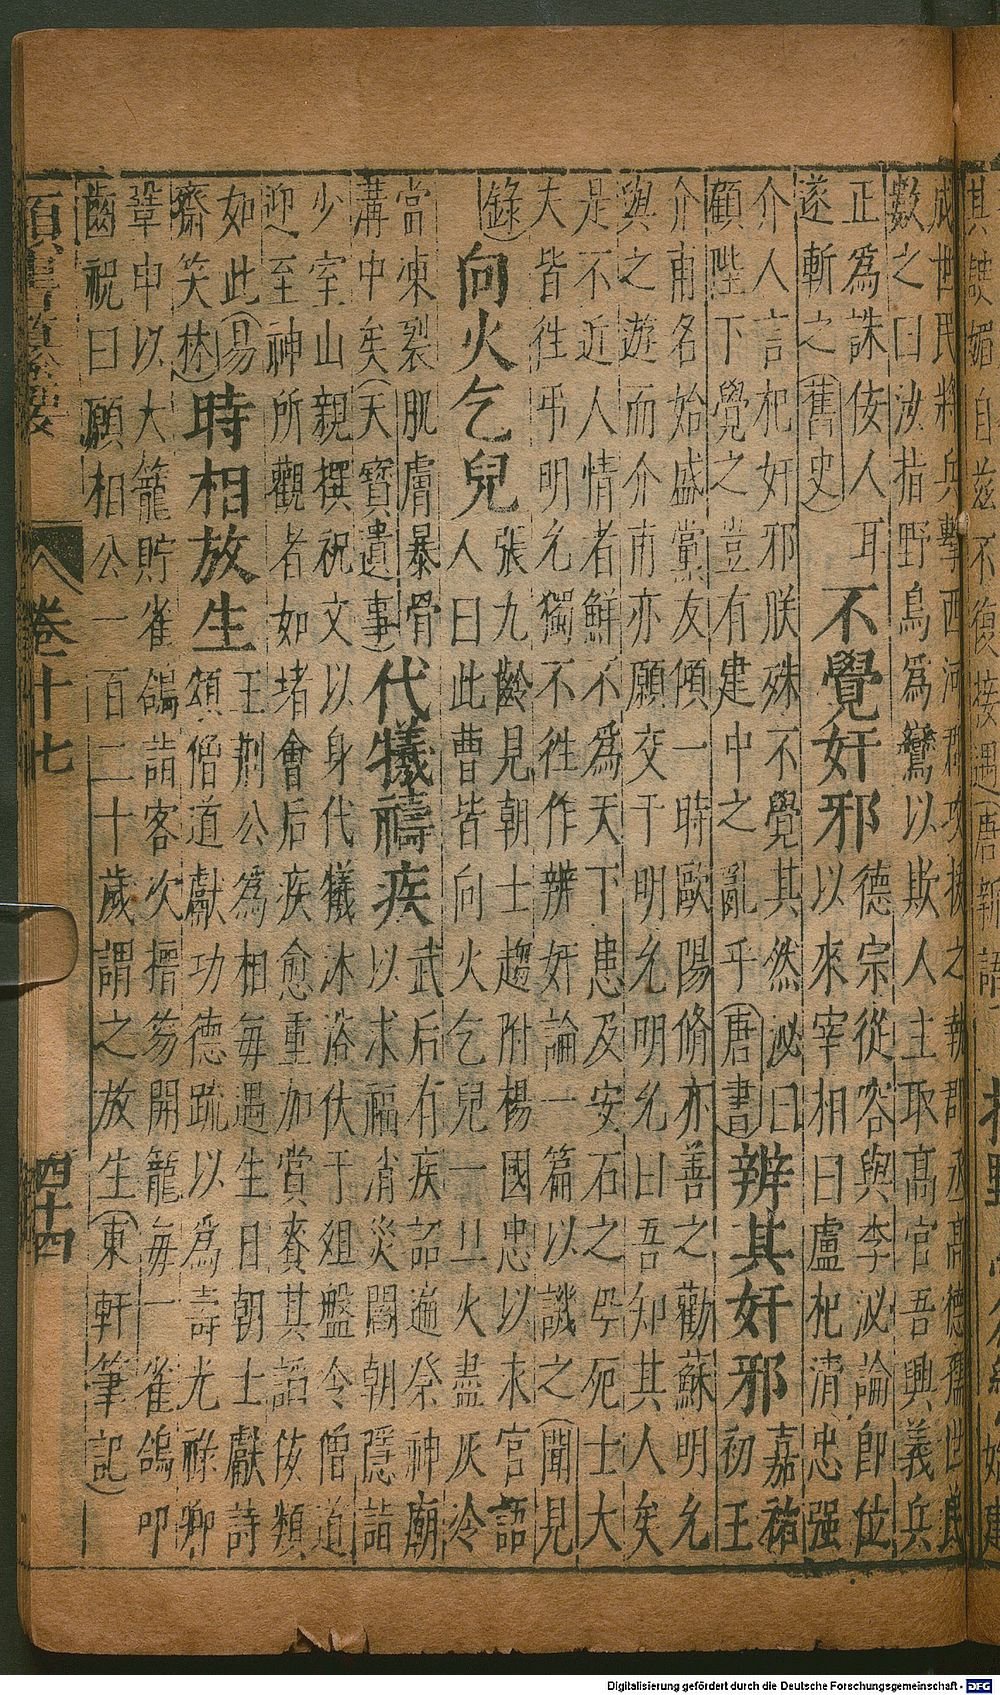 其諛媚自茲不復接遇(唐新語
成世民將兵擊西河郡攻拔之執郡丞高德儒世民
數之曰汝指野鳥爲鸞以欺人主取高官吾興義兵
正爲誅佞人耳
遂斬之(舊史)
不覺奸邪
德宗從容與李泌論即位
以來宰相曰盧杞清忠强
介人言杞奸邪朕殊不覺其然泌曰
顧陛下覺之豈有建中之亂乎(唐書)
辨其奸邪
嘉祐
初王
介甫名始盛黨友傾一時歐陽脩亦善之勸蘇明允
與之遊而介甫亦願交于明允明允曰吾知其人矣
是不近人情者鮮不爲天下患及安石之母死士大
夫皆往弔明允獨不往作辨奸論一篇以譏之(聞見
錄)
向火乞兒
張九齡見朝士趨附楊國忠以求官語
人曰此曹皆向火乞兒一旦火盡灰冷
當凍裂肌膚暴骨
溝中矣(天寶遺事)
代犧禱疾
武后有疾詔遍祭神廟
以求福消災閻朝隱詣
少室山親撰祝文以身代犧沐浴伏于俎盤令僧道
迎至神所觀者如堵會后疾愈重加賞賚其諂佞類
如此(易
齋笑林)
時相放生
王荊公爲相每遇生日朝士獻詩
頌僧道獻功德疏以爲壽光祿卿
鞏申以大籠貯雀鴿詣客次搢笏開籠每一雀鴿叩
齒祝曰願相公一百二十歲謂之放生(東軒筆記)
卷十七
四十四
Digitalisierung gefördert durch die Deutsche Forschungsgemeinschaft - DFG